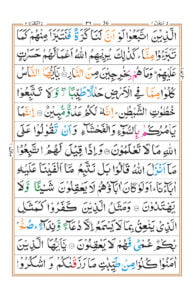 الَّذِيْنَ اتَّبَعُوْا لَوْ اَنَّ لَنَا كَرَّةً فَنَتَبَرَّاَ مِنْهُمْ كَمَا
تَبَرَّءُوْا مِنَّا ؕ كَذٰلِكَ يُرِيْهِمُ اللّٰهُ اَعْمَالَهُمْ حَسَرٰتٍ
عَلَيْهِمْ ؕ وَمَا هُمْ بِخٰرِجِيْنَ مِنَ النَّارِ يٰۤاَيُّهَا النَّاسُ
كُلُوْا مِمَّا فِى الْاَرْضِ حَلٰلًا طَيِّبًا وَّلَا تَتَّبِعُوْا
خُطُوٰتِ الشَّيْطٰنِ ؕ اِنَّهٗ لَكُمْ عَدُوٌّ مُّبِيْنٌ اِنَّمَا
يَاْمُرُكُمْ بِالسُّوْٓءِ وَالْفَحْشَآءِ وَاَنْ تَقُوْلُوْا عَلَى
اللّٰهِ مَا لَا تَعْلَمُوْنَ وَاِذَا قِيْلَ لَهُمُ اتَّبِعُوْا
مَآ اَنْزَلَ اللّٰهُ قَالُوْا بَلْ نَتَّبِعُ مَآ اَلْفَيْنَا عَلَيْهِ
اٰبَآءَنَا ؕ اَوَلَوْ كَانَ اٰبَآؤُهُمْ لَا يَعْقِلُوْنَ شَيْـًٔا وَّلَا
يَهْتَدُوْنَ وَمَثَلُ الَّذِيْنَ كَفَرُوْا كَمَثَلِ
الَّذِيْ يَنْعِقُ بِمَا لَا يَسْمَعُ اِلَّا دُعَآءً وَّنِدَآءً ؕ صُمٌّۢ
بُكْمٌ عُمْيٌ فَهُمْ لَا يَعْقِلُوْنَ يٰۤاَيُّهَا الَّذِيْنَ
اٰمَنُوْا كُلُوْا مِنْ طَيِّبٰتِ مَا رَزَقْنٰكُمْ وَاشْكُرُوْا